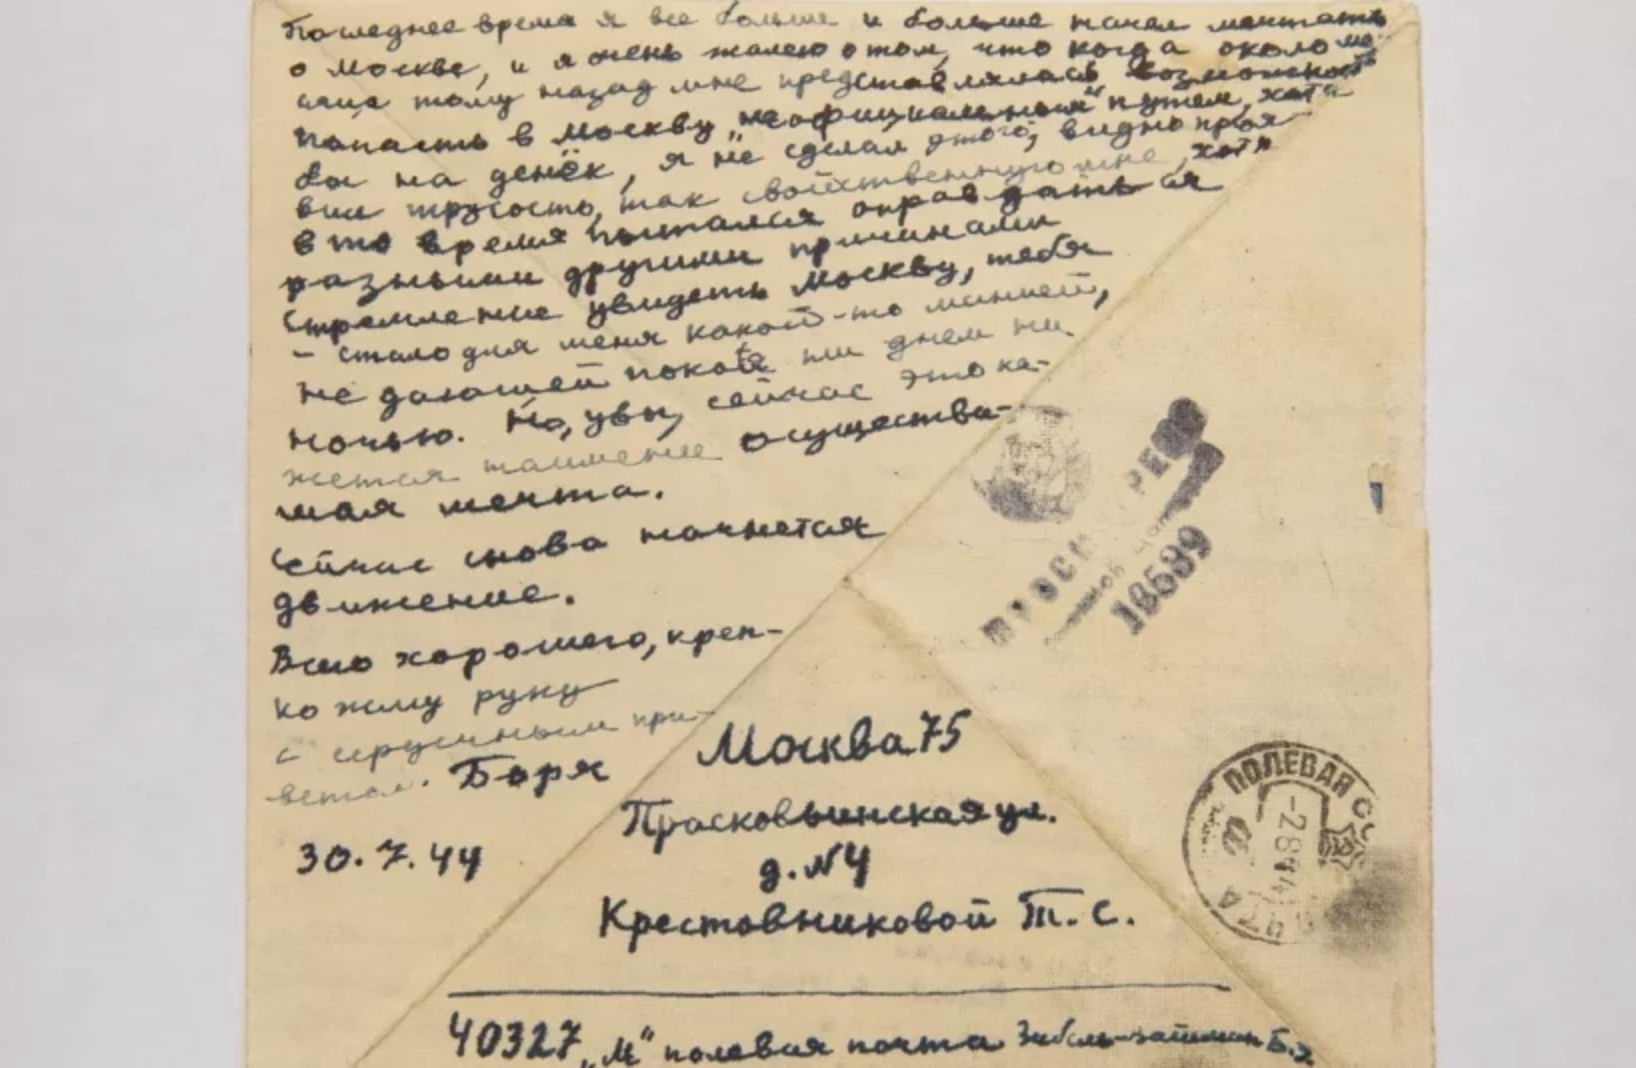 Последнее время я все больше и больше начал мечтать
о Москве, и я очень жалею о том, что когда около ме-
сяца тому назад мне представлялась возможность
попасть в Москву „неофициальным" путем, хотя
бы на денёк, я не сделал этого, видно проя-
вил трусость, так свойственную мне, хотя
в то время пытался оправдаться
разными другими причинами
Стремление увидеть Москву, тебя
– стало для меня какой-то манией,
не дающей покоя ни днем ни
ночью. Но, увы, сейчас это ка-
жется наименее осуществи-
мая мечта.
Сейчас снова начнется
движение.
Всего хорошего, креп-
ко жму руку
с искренним при-
ветом. Боря
30.7.44
ПРОСМ
18589
Москва 75
Прасковьинская ул.
д. № 4
Крестовниковой Т. С.
ПОЛЕВАЯ
40327 „М" полевая почта